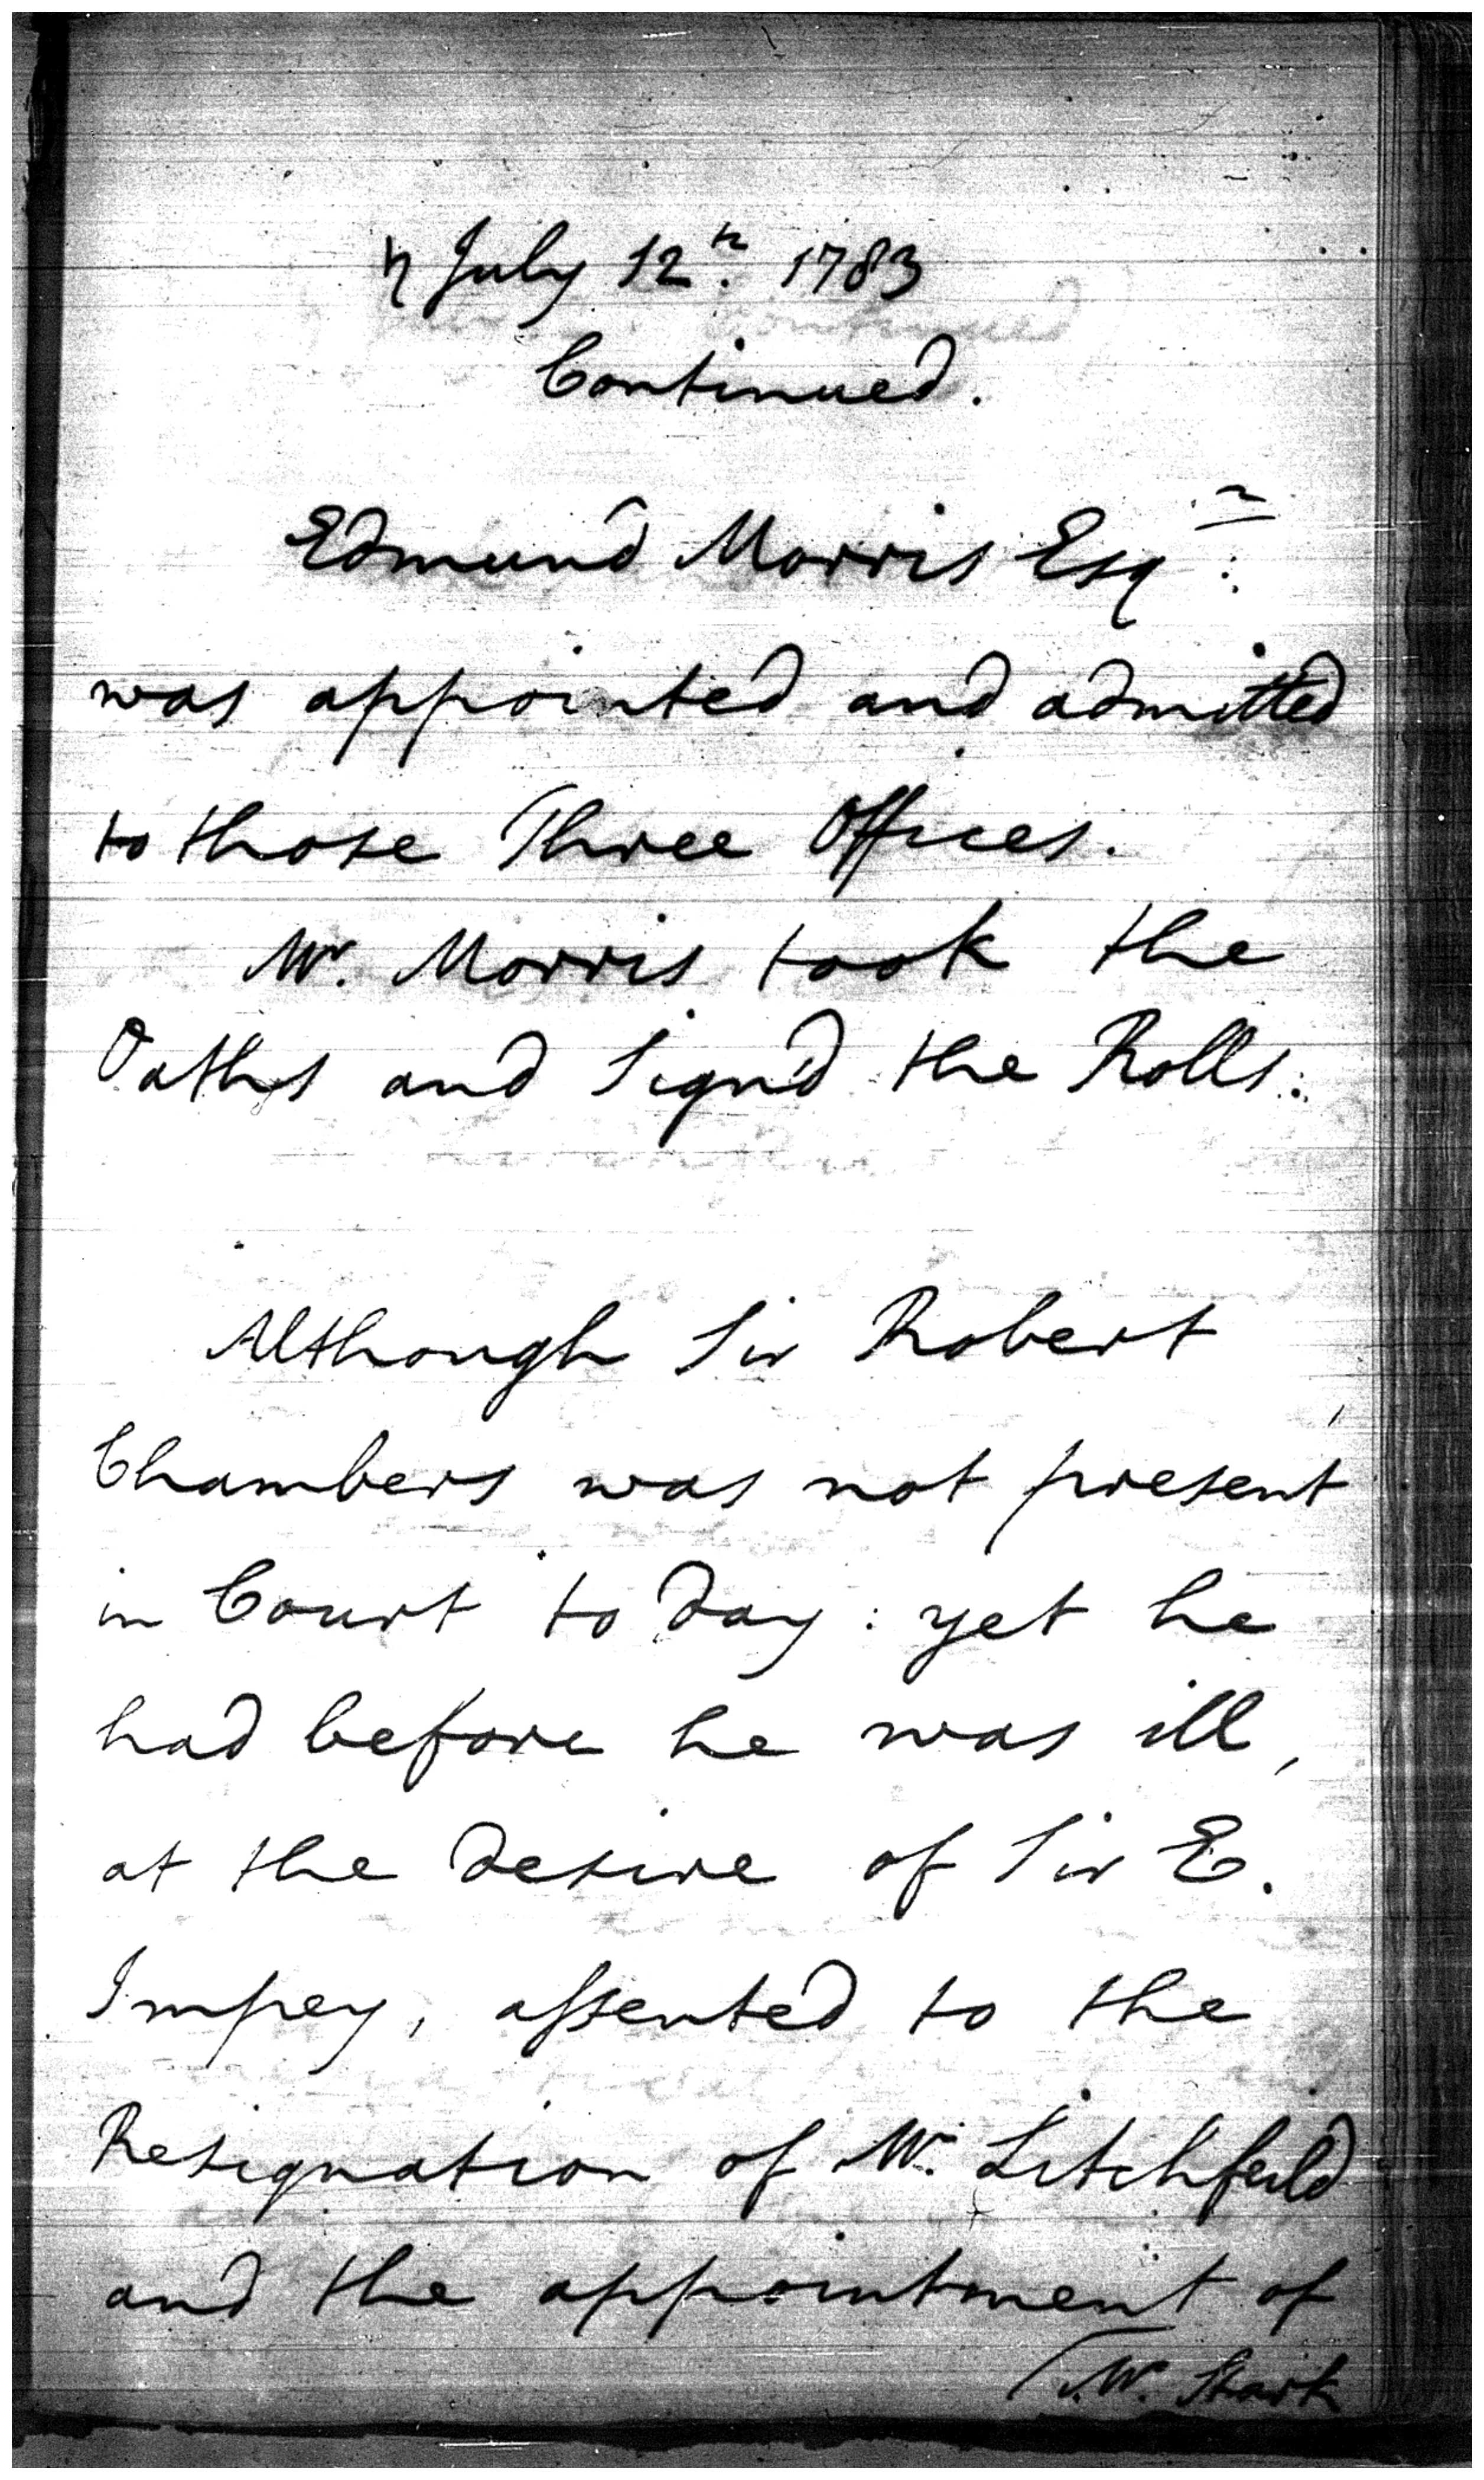 ♄ July 12th. 1783
Continued.
Edmund Morris Esqr:
was appointed and admitted
to those Three Offices.
Mr. Morris took the
Oaths and Sign'd the Rolls:
Although Sir Robert
Chambers was not present
in Court to day: yet he
had before he was ill,
at the desire of Sir E.
Impey, assented to the
Resignation of Mr. Litchfeild
and the appointment of
Mr. Stark